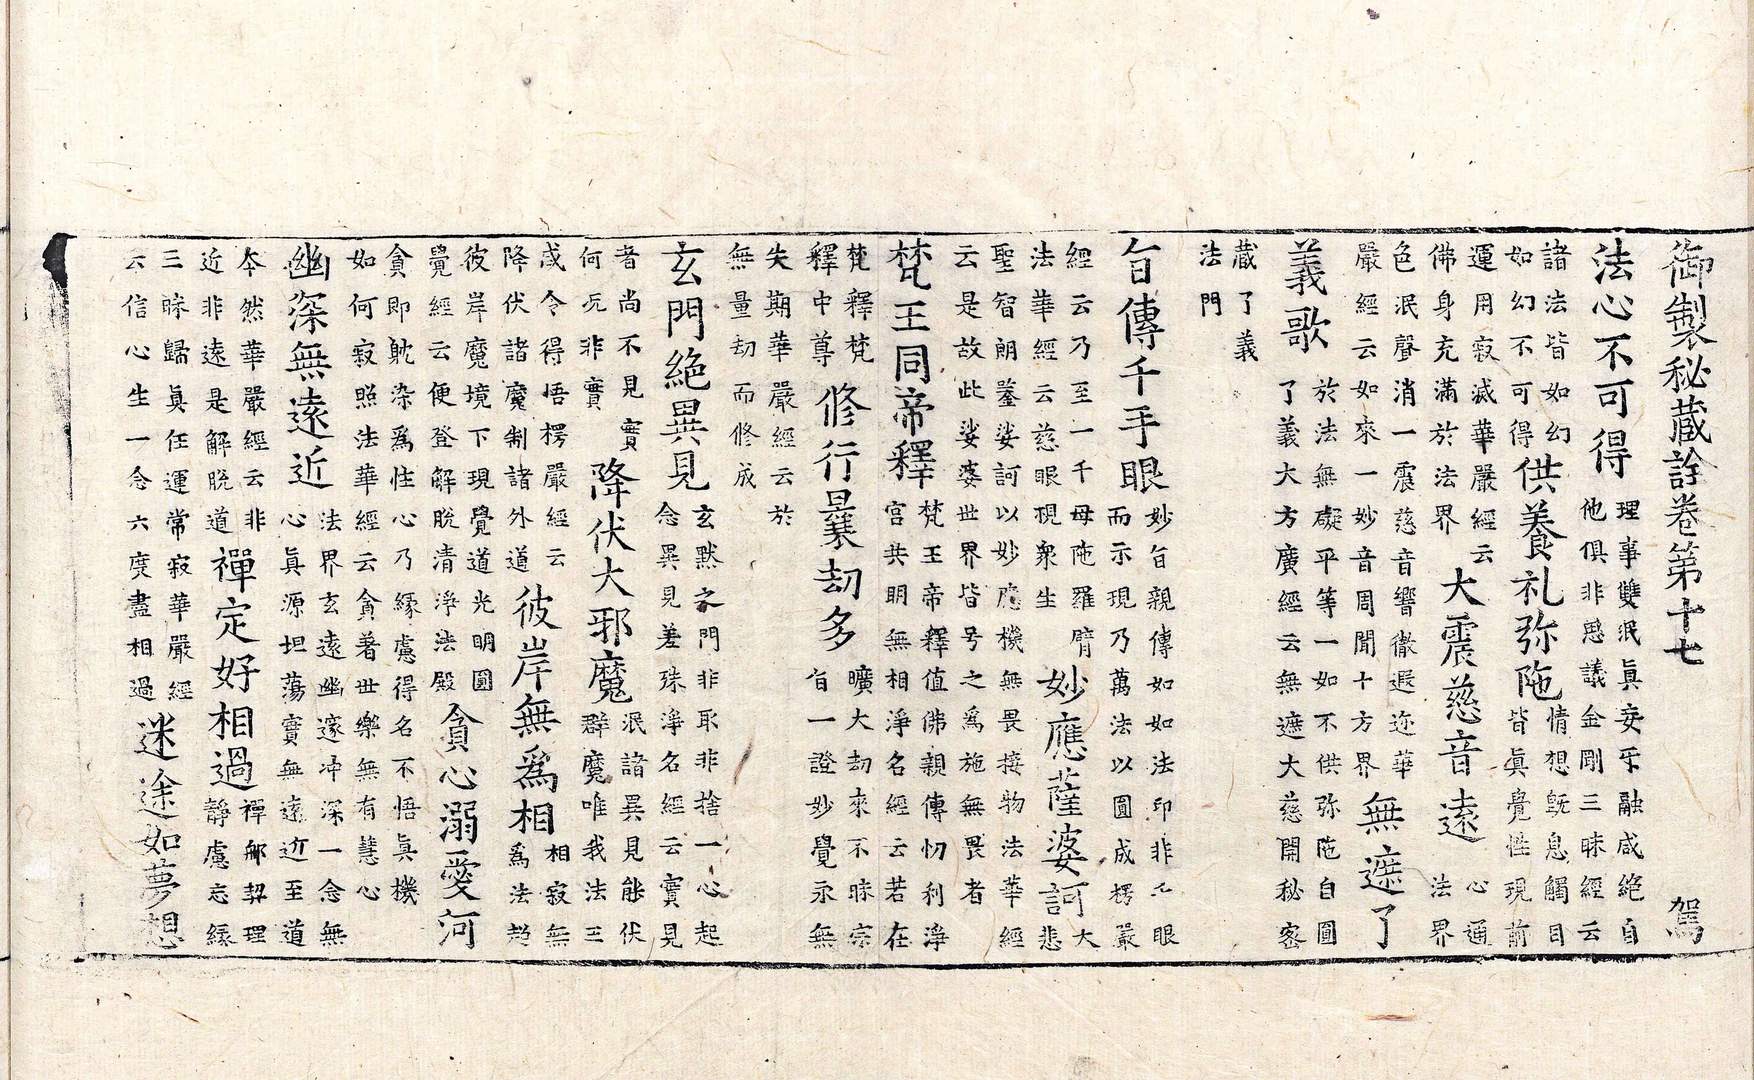 御製秘藏詮卷第十七　駕
法心不可得
理事雙泯眞妄乎融咸絕自
他俱非思議金剛三昧經云
諸法皆如幻
如幻不可得
供養礼弥陁
情想旣息觸目
皆眞覺性現前
運用寂滅華嚴經云
佛身充滿於法界
大震慈音遠
心通
法界
色泯聲消一震慈音響徹遐迩華
嚴經云如來一妙音周聞十方界
無遮了
義歌
於法無礙平等一如不供弥陁自圓
了義大方廣經云無遮大慈開秘密
藏了義
法門
旨傳千手眼
妙旨親傳如如法印非千眼
而示現乃萬法以圓成楞嚴
經云乃至一千母陁羅臂
法華經云慈眼視衆生
妙應薩婆訶
大
悲
聖智朗鑒娑訶以妙應機無畏接物法華經
云是故此娑婆世界皆号之爲施無畏者
梵王同帝釋
梵王帝釋值佛親傳忉利淨
宮共明無相淨名經云若在
梵釋梵
釋中尊
修行曩劫多
曠大劫來不昧宗
旨一證妙覺永無
失期華嚴經云於
無量劫而修成
玄門絕異見
玄默之門非取非捨一心起
念異見差殊淨名經云實見
者尚不見實
何况非實
降伏大邪魔
泯諸異見能伏
群魔唯我法王
咸令得悟楞嚴經云
降伏諸魔制諸外道
彼岸無爲相
相寂無
爲法超
彼岸魔境下現覺道光明圓
覺經云便登解脫清淨法殿
貪心溺愛河
貪即躭染爲性心乃緣慮得名不悟眞機
如何寂照法華經云貪著世樂無有慧心
幽深無遠近
法界玄遠幽邃冲深一念無
心眞源坦蕩實無遠近至道
本然華嚴經云非
近非遠是解脫道
禪定好相過
禪那契理
靜慮忘緣
三昧歸眞任運常寂華嚴經
云信心生一念六度盡相過
迷途如夢想